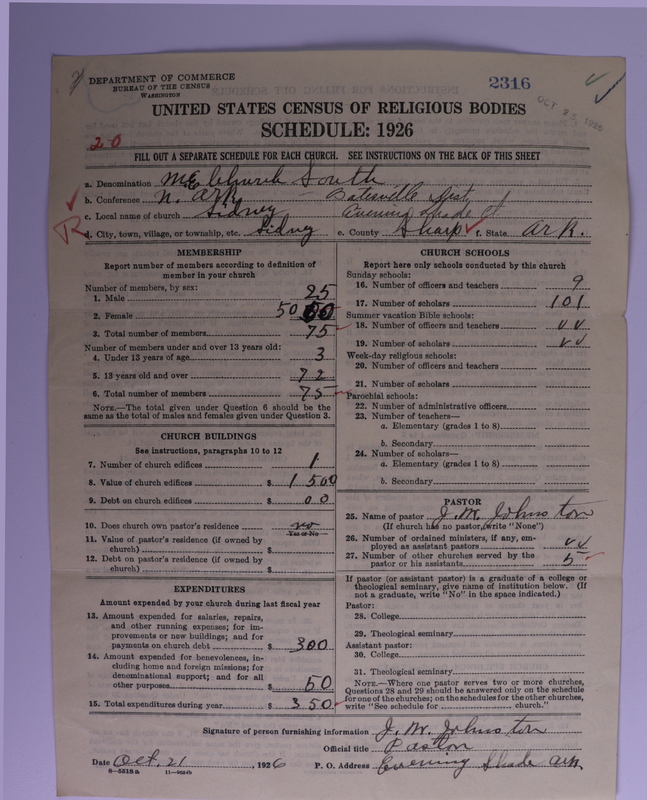 DEPARTMENT OF COMMERCE
BUREAU OF THE CENSUS
WASHINGTON
2316
OCT 25 1926
UNITED STATES CENSUS OF RELIGIOUS BODIES
SCHEDULE: 1926
20
FILL OUT A SEPARATE SCHEDULE FOR EACH CHURCH. SEE INSTRUCTIONS ON THE BACK OF THIS SHEET
a. Denomination M E Church South
b. Conference N. Ark — Batesville Dist
c. Local name of church Sidney Evening Shade Ct
R d. City, town, village, or township, etc. Sidney e. County Sharp f. State Ark.
MEMBERSHIP
Report number of members according to definition of
member in your church
Number of members, by sex:
1. Male 25
2. Female 50
3. Total number of members 75
Number of members under and over 13 years old:
4. Under 13 years of age 3
5. 13 years old and over 72
6. Total number of members 75
NOTE.—The total given under Question 6 should be
same as the total of males and females given under Question 3.
CHURCH BUILDINGS
See instructions, paragraphs 10 to 12
7. Number of church edifices 1
8. Value of church edifices $ 1500
9. Debt on church edifices $ 00
10. Does church own pastor's residence no
Yes or No
11. Value of pastor's residence (if owned by
church) $
12. Debt on pastor's residence (if owned by
church) $
EXPENDITURES
Amount expended by your church during last fiscal year
13. Amount expended for salaries, repairs,
and other running expenses; for im-
provements or new buildings; and for
payments on church debt $ 300
14. Amount expended for benevolences, in-
cluding home and foreign missions; for
denominational support; and for all
other purposes $ 50
15. Total expenditures during year $ 350
CHURCH SCHOOLS
Report here only schools conducted by this church
Sunday schools:
16. Number of officers and teachers 9
17. Number of scholars 101
Summer vacation Bible schools:
18. Number of officers and teachers
19. Number of scholars
Week-day religious schools:
20. Number of officers and teachers
21. Number of scholars
Parochial schools:
22. Number of administrative officers
23. Number of teachers—
a. Elementary (grades 1 to 8)
b. Secondary
24. Number of scholars—
a. Elementary (grades 1 to 8)
b. Secondary
PASTOR
25. Name of pastor J. M. Johnston
(If church has no pastor, write "None")
26. Number of ordained ministers, if any, em-
ployed as assistant pastors
27. Number of other churches served by the
pastor or his assistants 5
If pastor (or assistant pastor) is a graduate of a college or
theological seminary, give name of institution below. (If
not a graduate, write "No" in the space indicated.)
Pastor:
28. College
29. Theological seminary
Assistant pastor:
30. College
31. Theological seminary
NOTE.—Where one pastor serves two or more churches,
Questions 28 and 29 should be answered only on the schedule
for one of the churches; on the schedules for the other churches,
write "See schedule for church."
Signature of person furnishing information J. M. Johnston
Official title Pastor
Date Oct. 21, 1926 P. O. Address Evening Shade Ark
8—5518 a